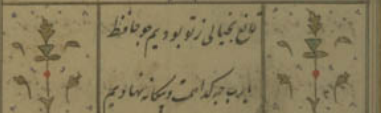 قانع بخیالی ز تو بودیم چو حافظ
یا رب چه گدا همت و بیگانه نهادیم